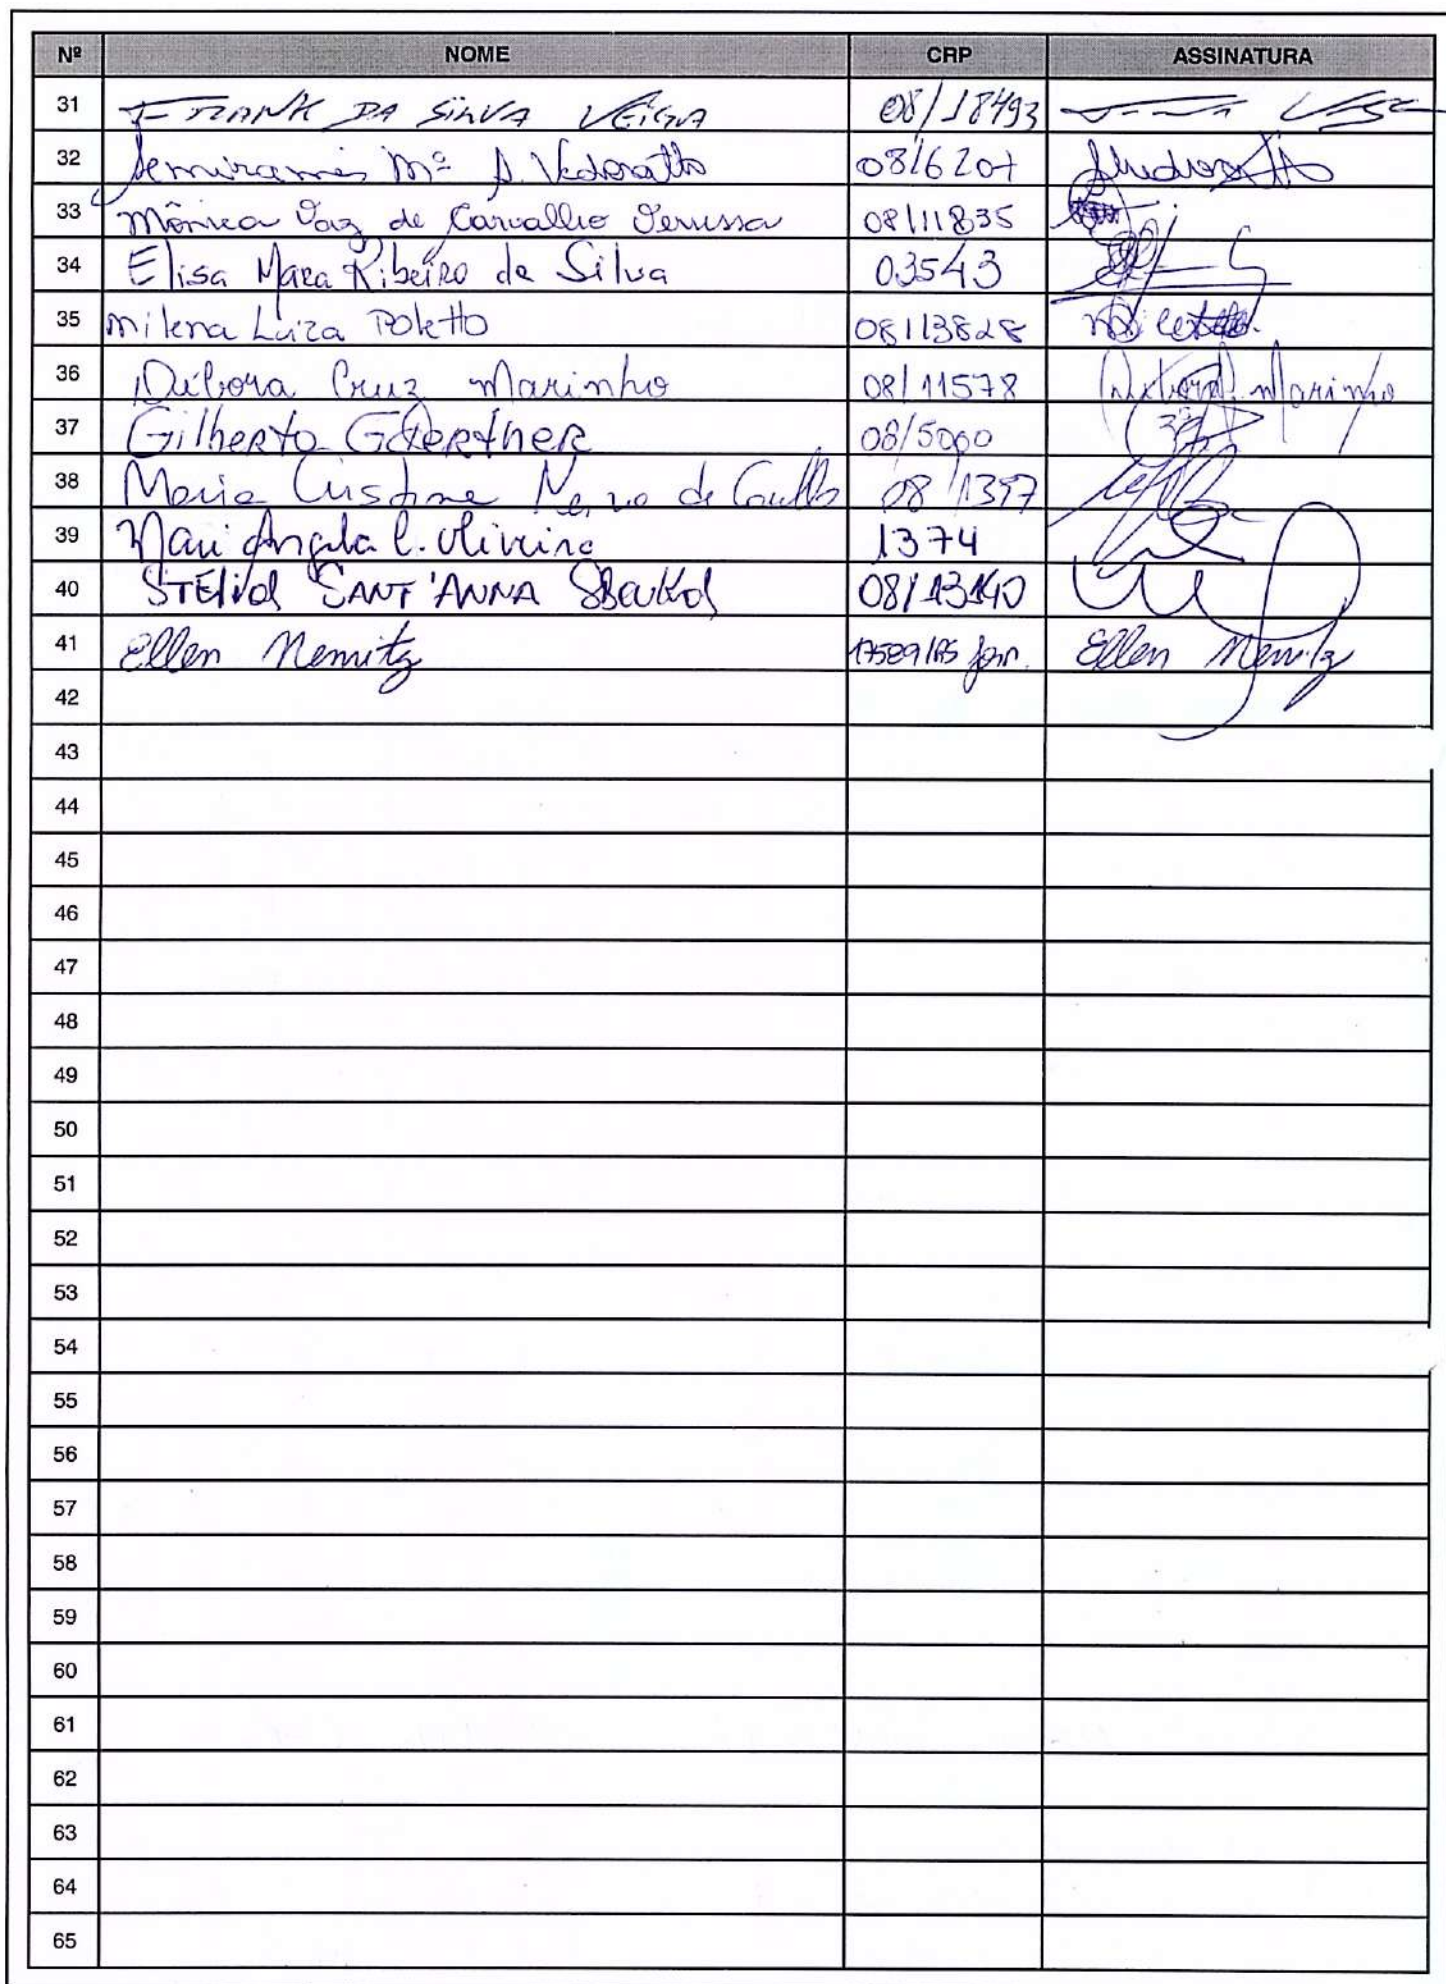 Nº NOME CRP ASSINATURA
31 FRANK DA SILVA VEIGA 08/18493
32 Semiramis Mª A. Vedovatto 08/6207
33 Mônica Vaz de Carvalho Serussa 08/11835
34 Elisa Mara Ribeiro da Silva 03543
35 Milena Luiza Poletto 08/13828
36 Débora Cruz Marinho 08/11578 Débora Marinho
37 Gilberto Gaertner 08/5000
38 Maria Cristina de 08/1397
39 Mari Angela C. Oliveira 1374
40 SANT'ANNA 08/13140
41 Ellen Nemitz Ellen Nemitz
42
43
44
45
46
47
48
49
50
51
52
53
54
55
56
57
58
59
60
61
62
63
64
65